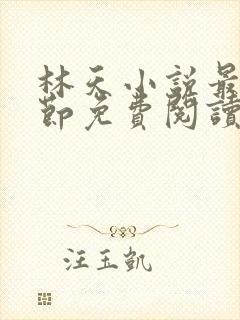 林天小説最
節免費閱讀
汪玉凱